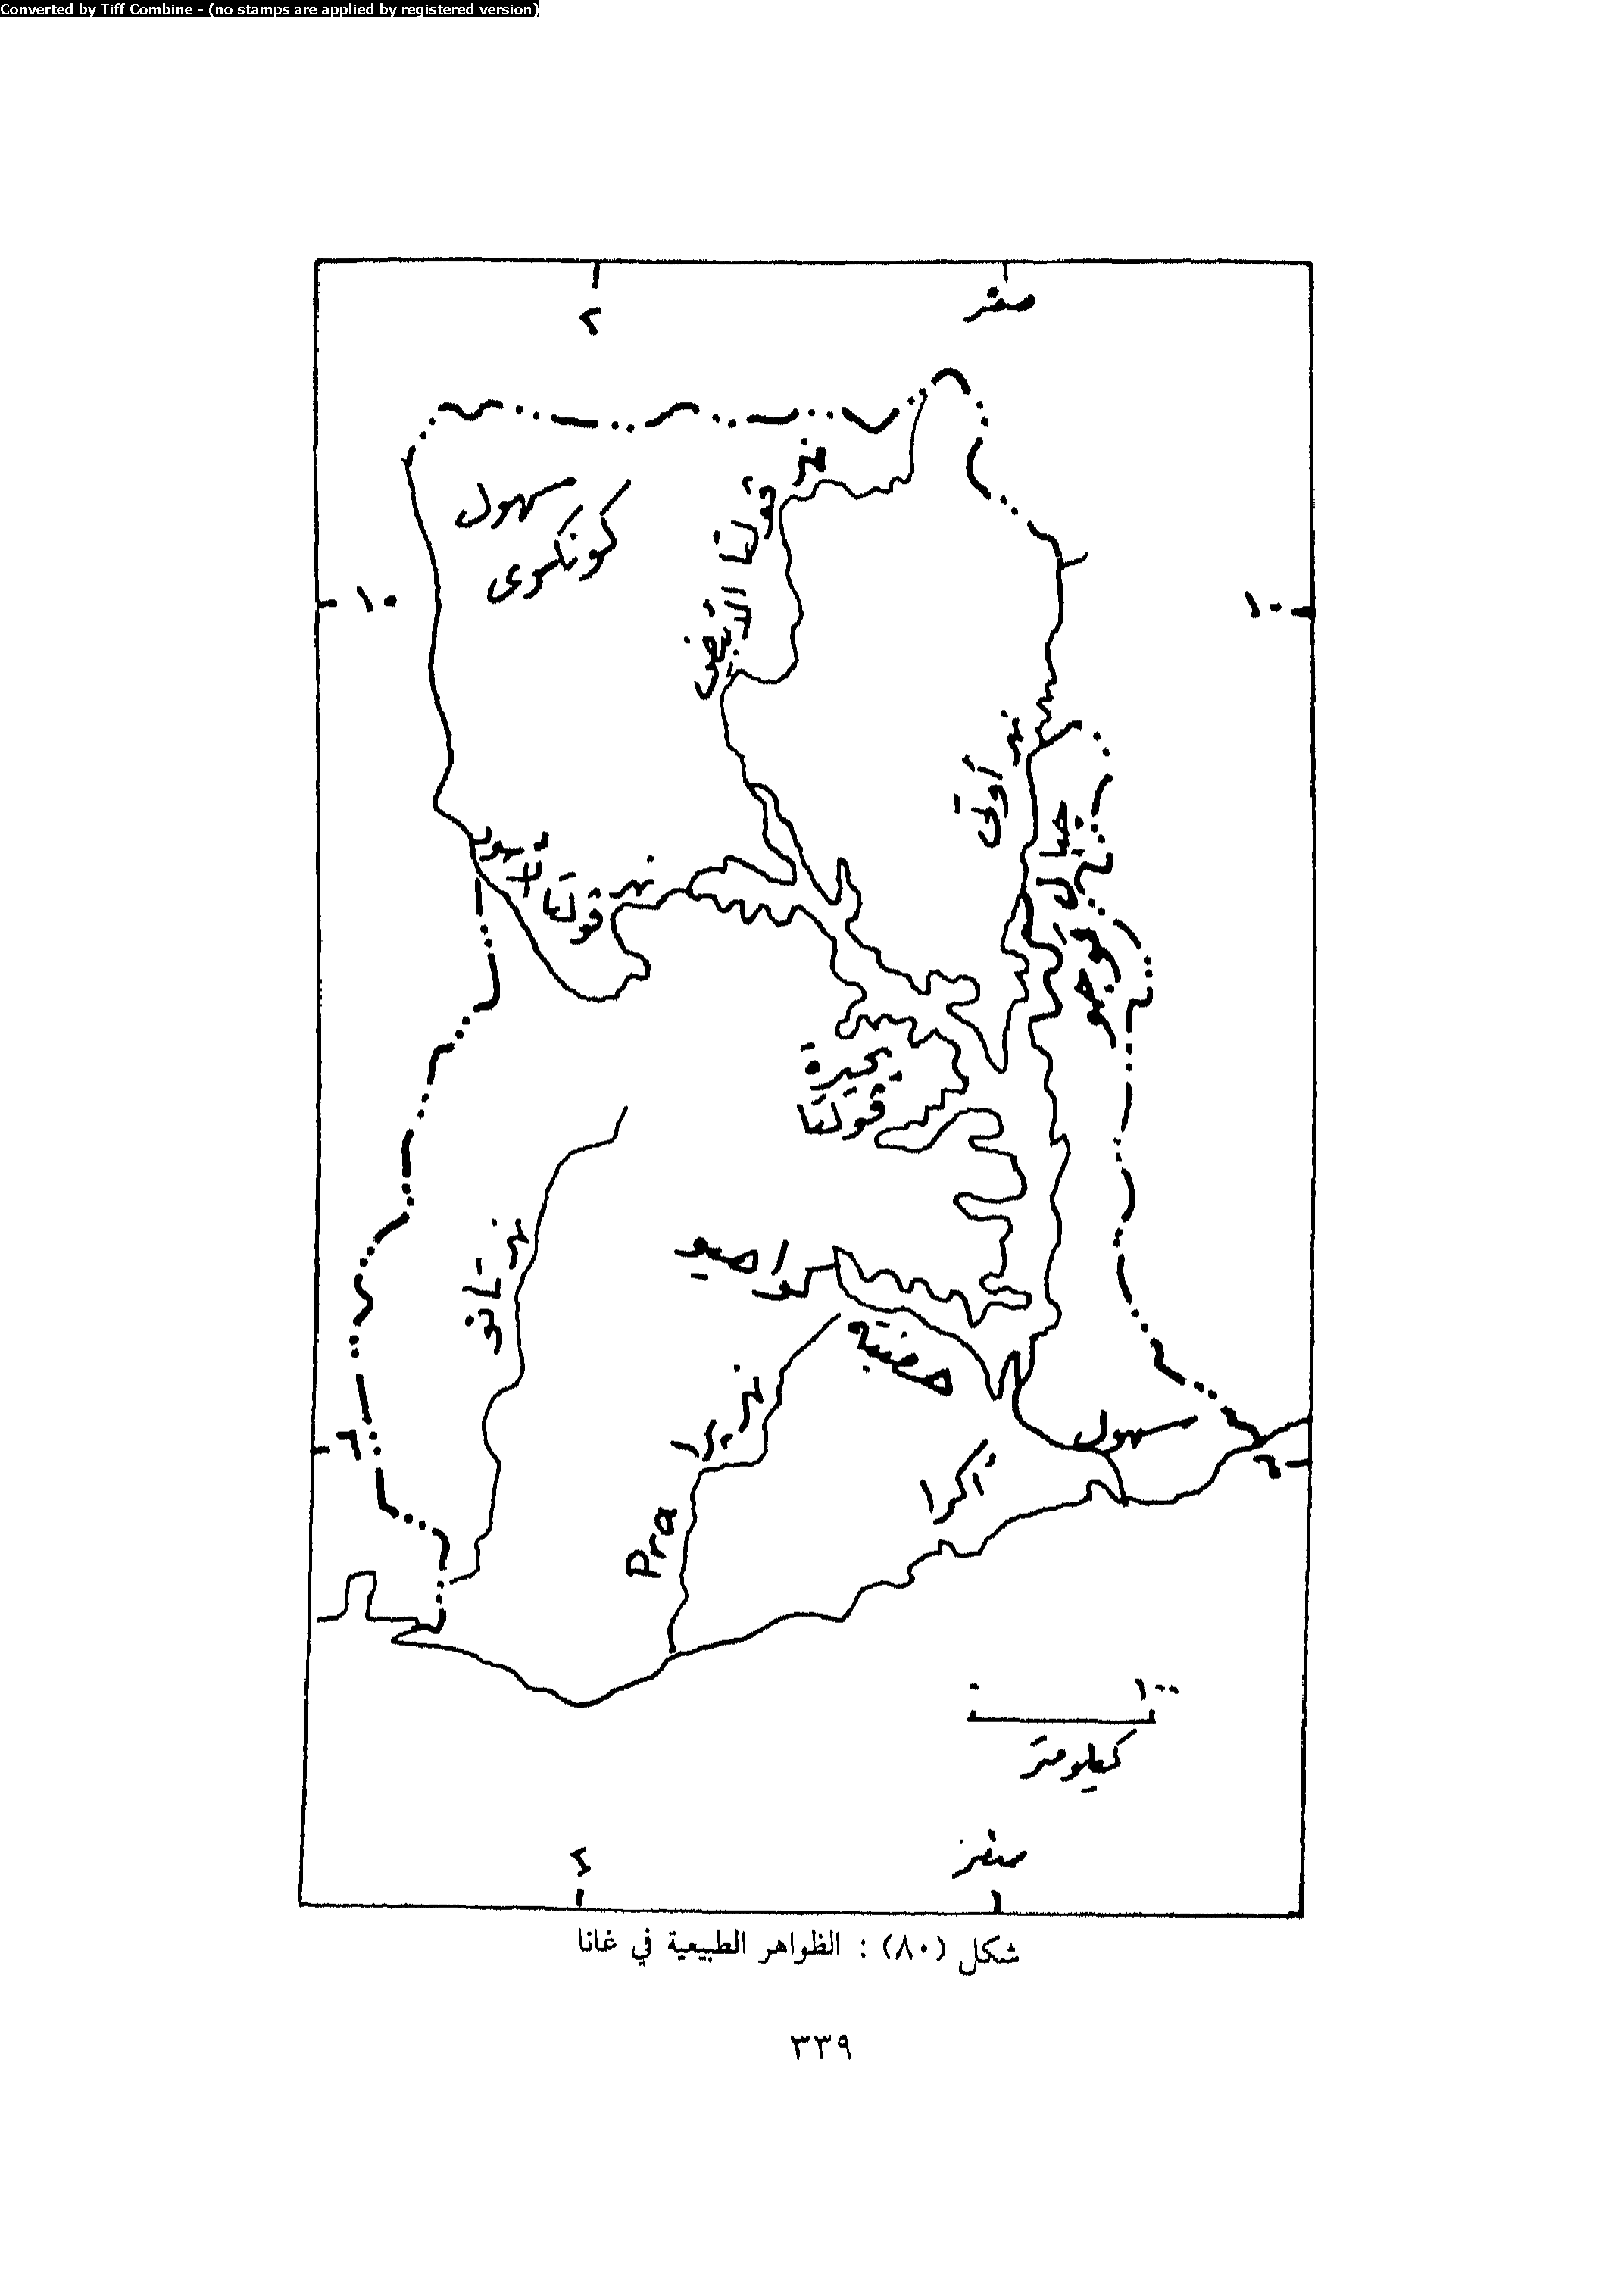 Converted by Tiff Combine - (no stamps are applied by registered version)
٢
صفر
سهول
كونكوى
نهر
فولتا الأبيض
١٠
١٠
نهر أوتى
جبال
توجو
نهر
فولتا
الأسود
بحيرة
فولتا
نهر تانو
هضبة
كواهيو
نهر برا
Pra
سهول
أكرا
٦
٦
٠ ١٠٠
كيلومتر
٢
صفر
شكل (٨٠) : الظواهر الطبيعية في غانا
٣٣٩